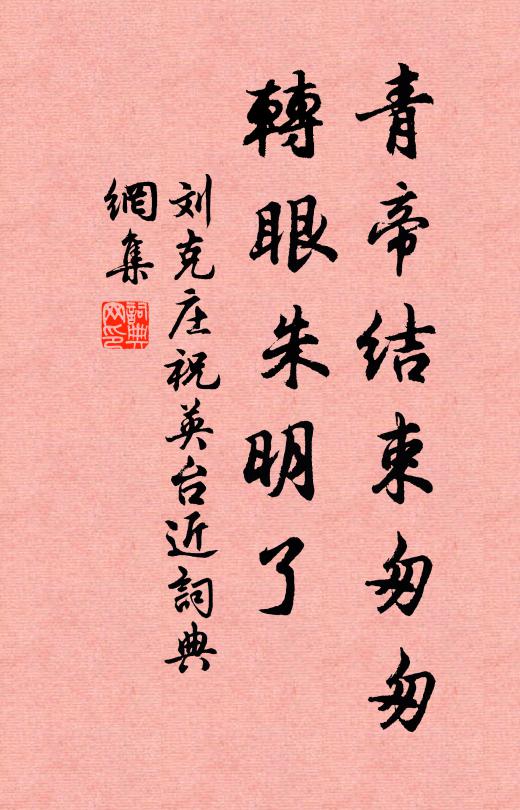 青帝結束匆匆
轉眼朱明了
刘克庄祝英台近詞典
網集
詞典網印